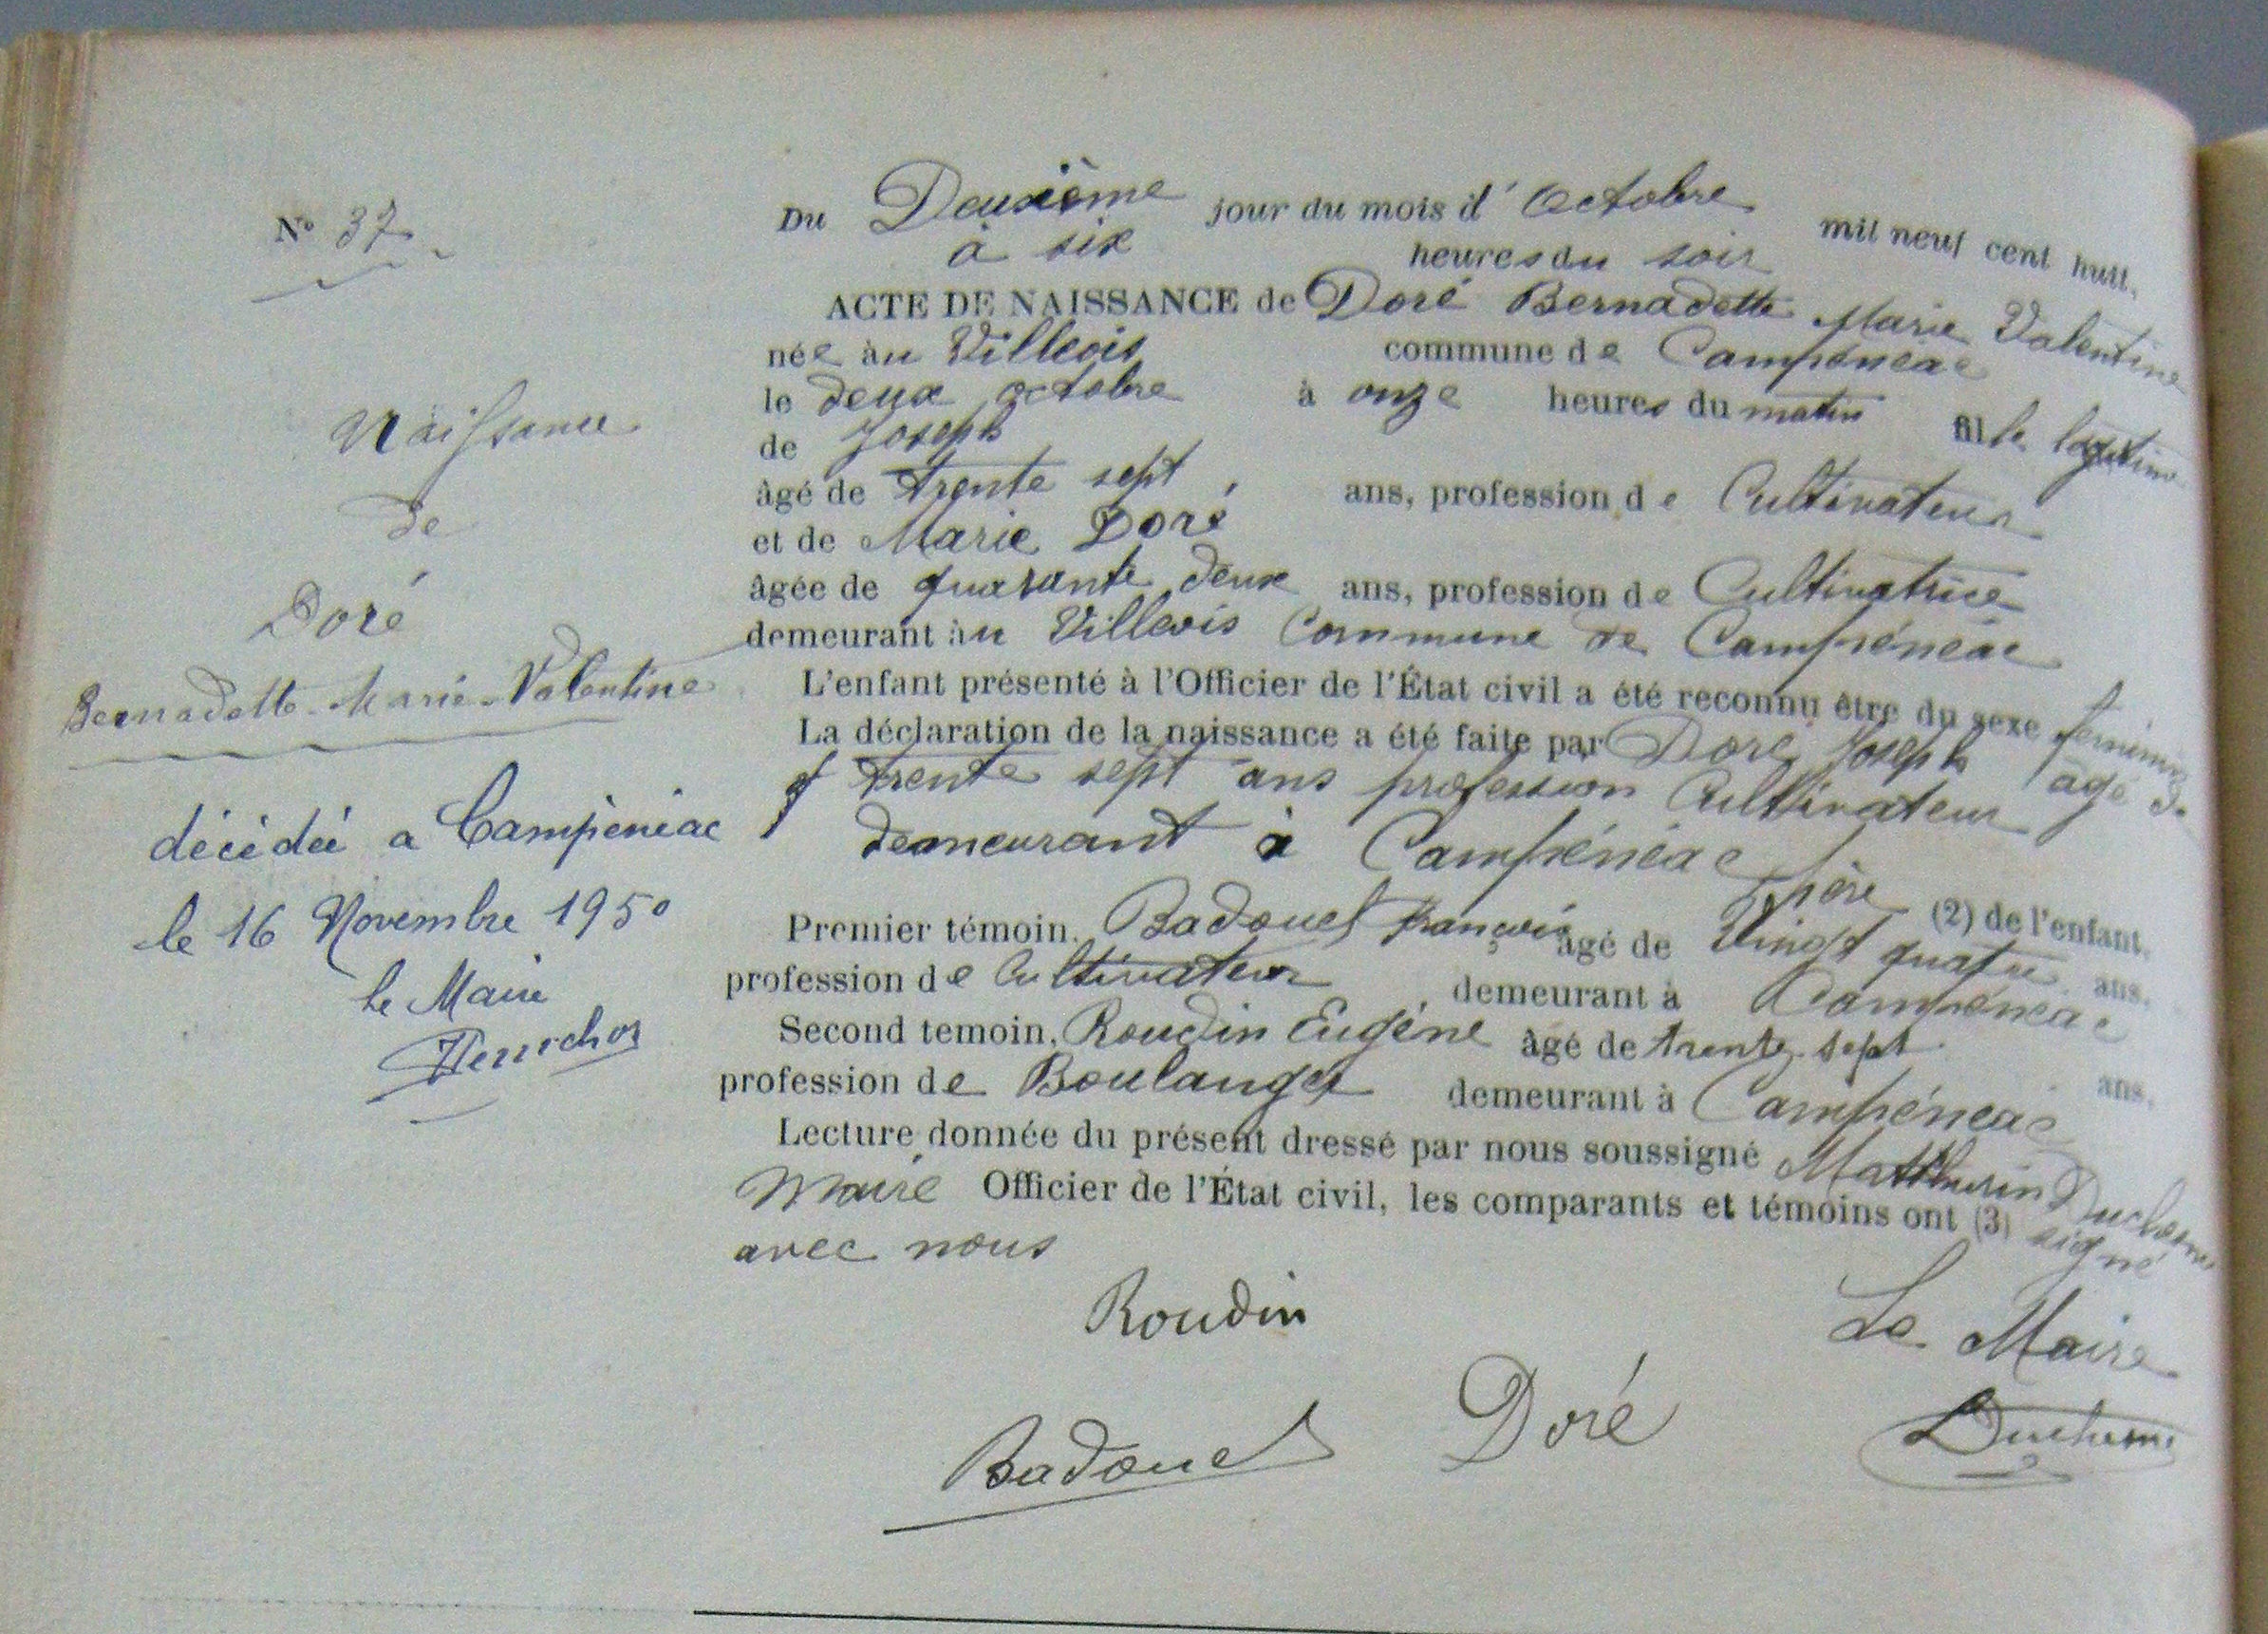 N° 37
Naissance
de
Doré
Bernadette Marie Valentine
décédée a Campénéac
le 16 Novembre 1950
le Maire
Du Deuxième jour du mois d'Octobre mil neuf cent huit,
à six heures du soir
ACTE DE NAISSANCE de Doré Bernadette Marie Valentine
née àu Villeois commune de Campénéac
le deux octobre à onze heures du matin fille légitime
de Joseph
âgé de trente sept ans, profession de Cultivateur
et de Marie Doré
âgée de quarante deux ans, profession de Cultivatrice
demeurant àu Villeois Commune de Campénéac
L'enfant présenté à l'Officier de l'État civil a été reconnu être du sexe féminin
La déclaration de la naissance a été faite par Doré Joseph âgé de
trente sept ans profession Cultivateur
demeurant à Campénéac
père (2) de l'enfant.
Premier témoin, Badouel François âgé de Vingt quatre ans,
profession de Cultivateur demeurant à Campénéac
Second temoin, Roudin Eugéne âgé de trente-sept ans,
profession de Boulanger demeurant à Campénéac
Lecture donnée du présent dressé par nous soussigné Mathurin Duchesne
Maire Officier de l'État civil, les comparants et témoins ont (3) signé
avec nous
Roudin
Le Maire
Badouel
Doré
Duchesne